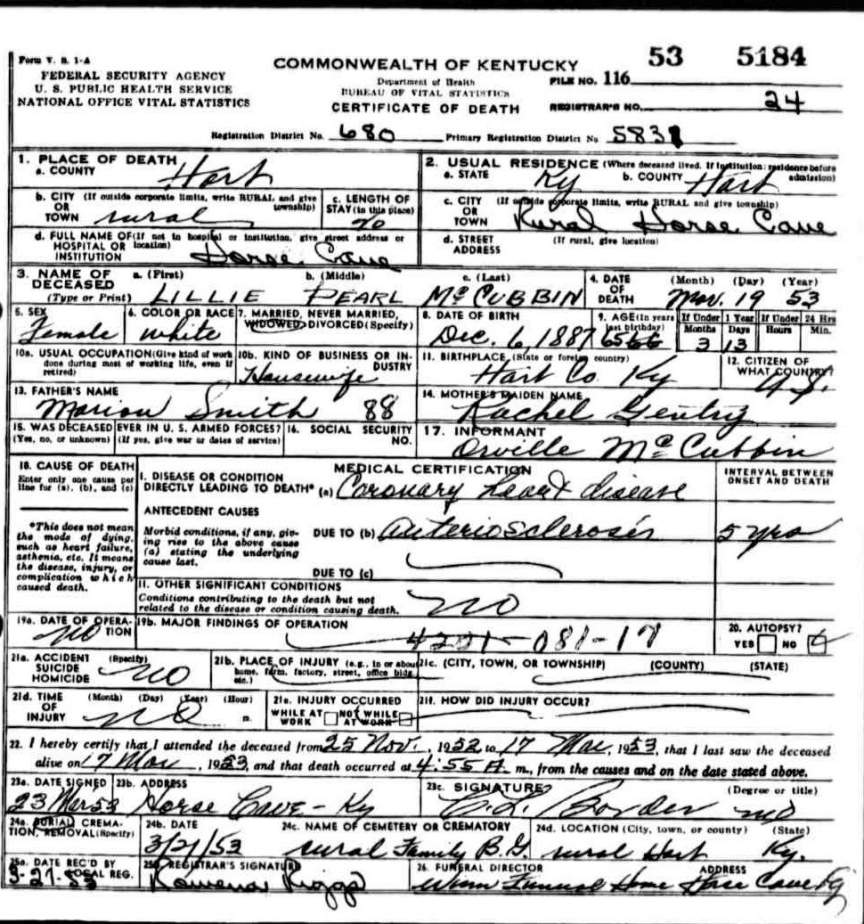 Form V. S. 1-A
FEDERAL SECURITY AGENCY
U. S. PUBLIC HEALTH SERVICE
NATIONAL OFFICE VITAL STATISTICS
COMMONWEALTH OF KENTUCKY
Department of Health
BUREAU OF VITAL STATISTICS
CERTIFICATE OF DEATH
53 5184
FILE NO. 116
REGISTRAR'S NO. 24
Registration District No. 680 Primary Registration District No 5831
1. PLACE OF DEATH
a. COUNTY Hart
2. USUAL RESIDENCE (Where deceased lived. If institution: residence before admission)
a. STATE Ky b. COUNTY Hart
b. CITY (If outside corporate limits, write RURAL and give township) OR TOWN rural
c. LENGTH OF STAY (in this place) 70
c. CITY (If outside corporate limits, write RURAL and give township) OR TOWN Rural Horse Cave
d. FULL NAME OF (If not in hospital or institution, give street address or location) HOSPITAL OR INSTITUTION Horse Cave
d. STREET ADDRESS (If rural, give location)
3. NAME OF DECEASED (Type or Print)
a. (First) b. (Middle) c. (Last)
LILLIE PEARL McCUBBIN
4. DATE OF DEATH (Month) (Day) (Year)
Mar. 19 53
5. SEX Female
6. COLOR OR RACE white
7. MARRIED, NEVER MARRIED, WIDOWED, DIVORCED (Specify)
8. DATE OF BIRTH Dec. 6, 1887
9. AGE (In years last birthday) If Under 1 Year If Under 24 Hrs
Months Days Hours Min.
3 13
10a. USUAL OCCUPATION (Give kind of work done during most of working life, even if retired)
10b. KIND OF BUSINESS OR INDUSTRY
Housewife
11. BIRTHPLACE (State or foreign country)
Hart Co. Ky
12. CITIZEN OF WHAT COUNTRY?
U.S.
13. FATHER'S NAME
Marion Smith 88
14. MOTHER'S MAIDEN NAME
Rachel Gentry
15. WAS DECEASED EVER IN U. S. ARMED FORCES?
(Yes, no, or unknown) (If yes, give war or dates of service)
16. SOCIAL SECURITY NO.
17. INFORMANT
Orville McCubbin
18. CAUSE OF DEATH
Enter only one cause per line for (a), (b), and (c)
*This does not mean the mode of dying, such as heart failure, asthenia, etc. It means the disease, injury, or complication which caused death.
MEDICAL CERTIFICATION
INTERVAL BETWEEN ONSET AND DEATH
I. DISEASE OR CONDITION DIRECTLY LEADING TO DEATH* (a) Coronary heart disease
ANTECEDENT CAUSES
Morbid conditions, if any, giving rise to the above cause (a) stating the underlying cause last.
DUE TO (b) Arteriosclerosis 5 yrs
DUE TO (c)
II. OTHER SIGNIFICANT CONDITIONS
Conditions contributing to the death but not related to the disease or condition causing death.
no
19a. DATE OF OPERATION no
19b. MAJOR FINDINGS OF OPERATION
4221-081-17
20. AUTOPSY?
YES NO
21a. ACCIDENT (Specify) SUICIDE HOMICIDE no
21b. PLACE OF INJURY (e.g., in or about home, farm, factory, street, office bldg. etc.)
21c. (CITY, TOWN, OR TOWNSHIP) (COUNTY) (STATE)
21d. TIME (Month) (Day) (Year) (Hour) OF INJURY no m.
21e. INJURY OCCURRED
WHILE AT WORK NOT WHILE AT WORK
21f. HOW DID INJURY OCCUR?
22. I hereby certify that I attended the deceased from 25 Nov., 1952 to 17 Mar, 1953, that I last saw the deceased
alive on 17 Mar, 1953 and that death occurred at 4:55 A m., from the causes and on the date stated above.
23a. DATE SIGNED 23b. ADDRESS 23c. SIGNATURE (Degree or title)
23 Mar 53 Horse Cave - Ky Border MD
24a. BURIAL, CREMATION, REMOVAL (Specify)
24b. DATE
3/21/53
24c. NAME OF CEMETERY OR CREMATORY
rural Family B.G.
24d. LOCATION (City, town, or county) (State)
rural Hart Ky.
25a. DATE REC'D BY LOCAL REG.
3-27-53
25b. REGISTRAR'S SIGNATURE
Rowena Riggs
26. FUNERAL DIRECTOR ADDRESS
Winn Funeral Home Horse Cave Ky